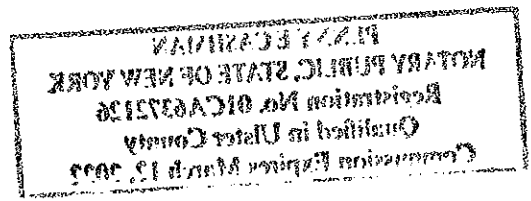 CASHMAN
NOTARY PUBLIC, STATE OF NEW YORK
Registration No. 01CA6372126
Qualified in Ulster County
Commission Expires March 12, 2022